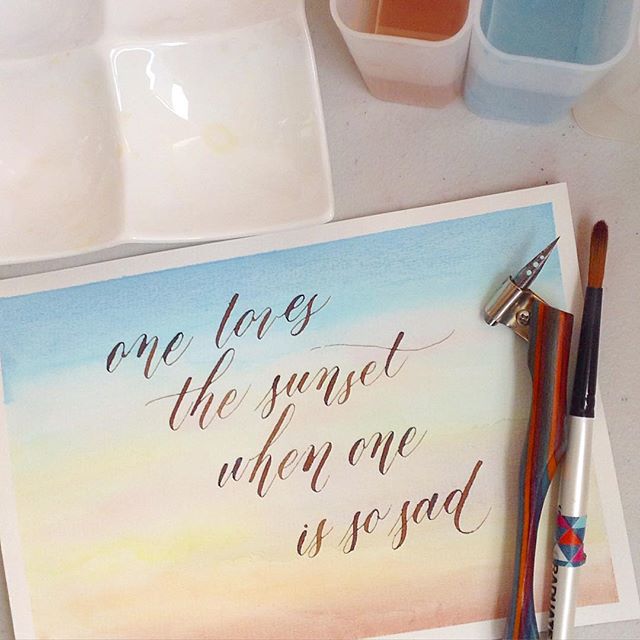 one loves
the sunset
when one
is so sad